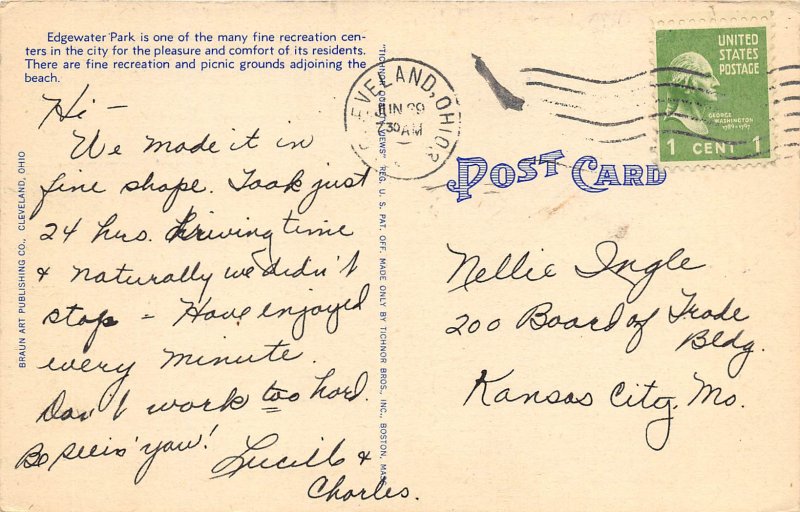 Edgewater Park is one of the many fine recreation cen-
ters in the city for the pleasure and comfort of its residents.
There are fine recreation and picnic grounds adjoining the
beach.
Hi -
We made it in
fine shape. Took just
24 hrs. driving time
& naturally we didn't
stop - Have enjoyed
every minute.
Don't work too hard.
Be seein' yaw!
Lucille &
Charles.
BRAUN ART PUBLISHING CO., CLEVELAND, OHIO
REG. U. S. PAT. OFF. MADE ONLY BY TICHNOR BROS., INC., BOSTON, MASS.
CLEVELAND, OHIO
JUN 29
730 AM
UNITED
STATES
POSTAGE
GEORGE
WASHINGTON
1789-1797
1 CENT 1
POST CARD
Nellie Ingle
200 Board of Trade
Bldg.
Kansas City, Mo.